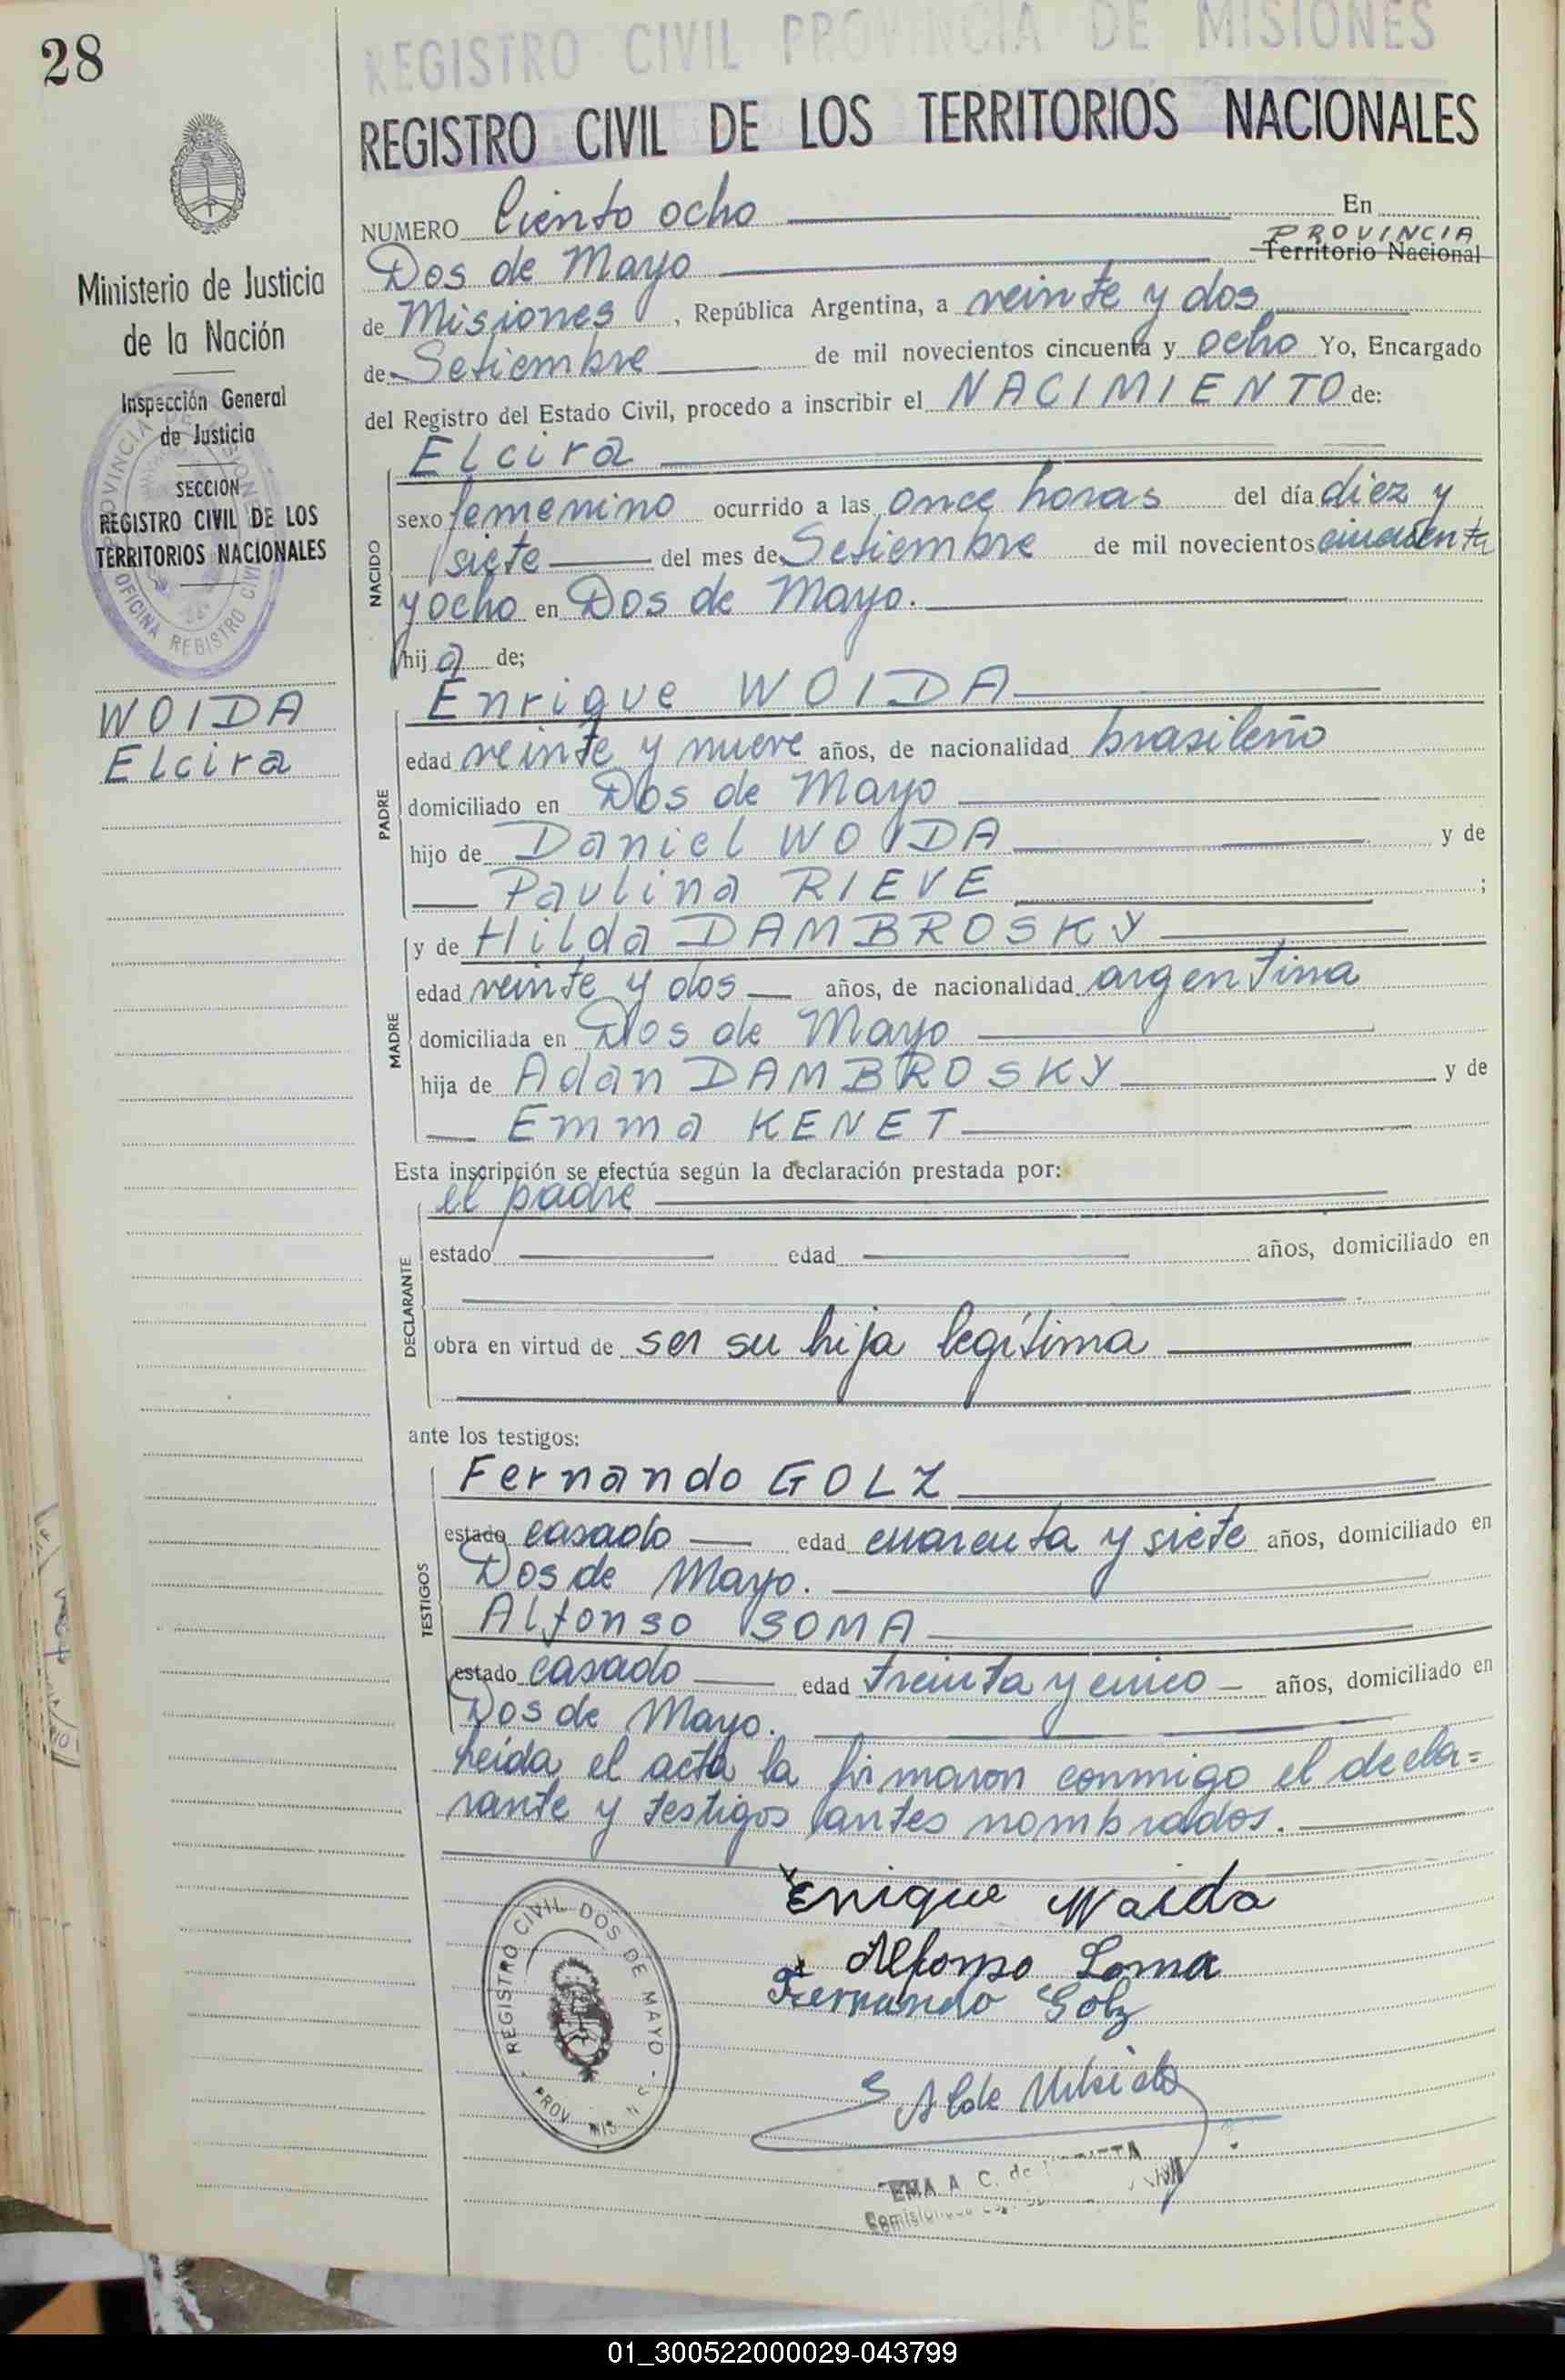 28
REGISTRO CIVIL PROVINCIA DE MISIONES
REGISTRO CIVIL DE LOS TERRITORIOS NACIONALES
Ministerio de Justicia
de la Nación
Inspección General
de Justicia
SECCIÓN
REGISTRO CIVIL DE LOS
TERRITORIOS NACIONALES
PROVINCIA DE MISIONES
OFICINA REGISTRO CIVIL
WOIDA
Elcira
NUMERO Ciento ocho En
Dos de Mayo PROVINCIA
Territorio Nacional
de Misiones, República Argentina, a veinte y dos
de Setiembre de mil novecientos cincuenta y ocho Yo, Encargado
del Registro del Estado Civil, procedo a inscribir el NACIMIENTO de:
Elcira
NACIDO
sexo femenino ocurrido a las once horas del día diez y
siete del mes de Setiembre de mil novecientos cincuenta
y ocho en Dos de Mayo.
hija de;
Enrique WOIDA
PADRE
edad veinte y nueve años, de nacionalidad brasileño
domiciliado en Dos de Mayo
hijo de Daniel WOIDA y de
Paulina RIEVE ;
y de Hilda DAMBROSKY
MADRE
edad veinte y dos años, de nacionalidad argentina
domiciliada en Dos de Mayo
hija de Adan DAMBROSKY y de
Emma KENET
Esta inscripción se efectúa según la declaración prestada por:
el padre
DECLARANTE
estado edad años, domiciliado en
obra en virtud de ser su hija legítima
ante los testigos:
Fernando GOLZ
TESTIGOS
estado casado edad cuarenta y siete años, domiciliado en
Dos de Mayo.
Alfonso SOMA
estado casado edad treinta y cinco años, domiciliado en
Dos de Mayo.
Leida el acta la firmaron conmigo el decla=
rante y testigos antes nombrados.
Enrique Woida
Alfonso Soma
Fernando Golz
REGISTRO CIVIL DOS DE MAYO
PROV. MIS.
EMA A. C. de
01_300522000029-043799